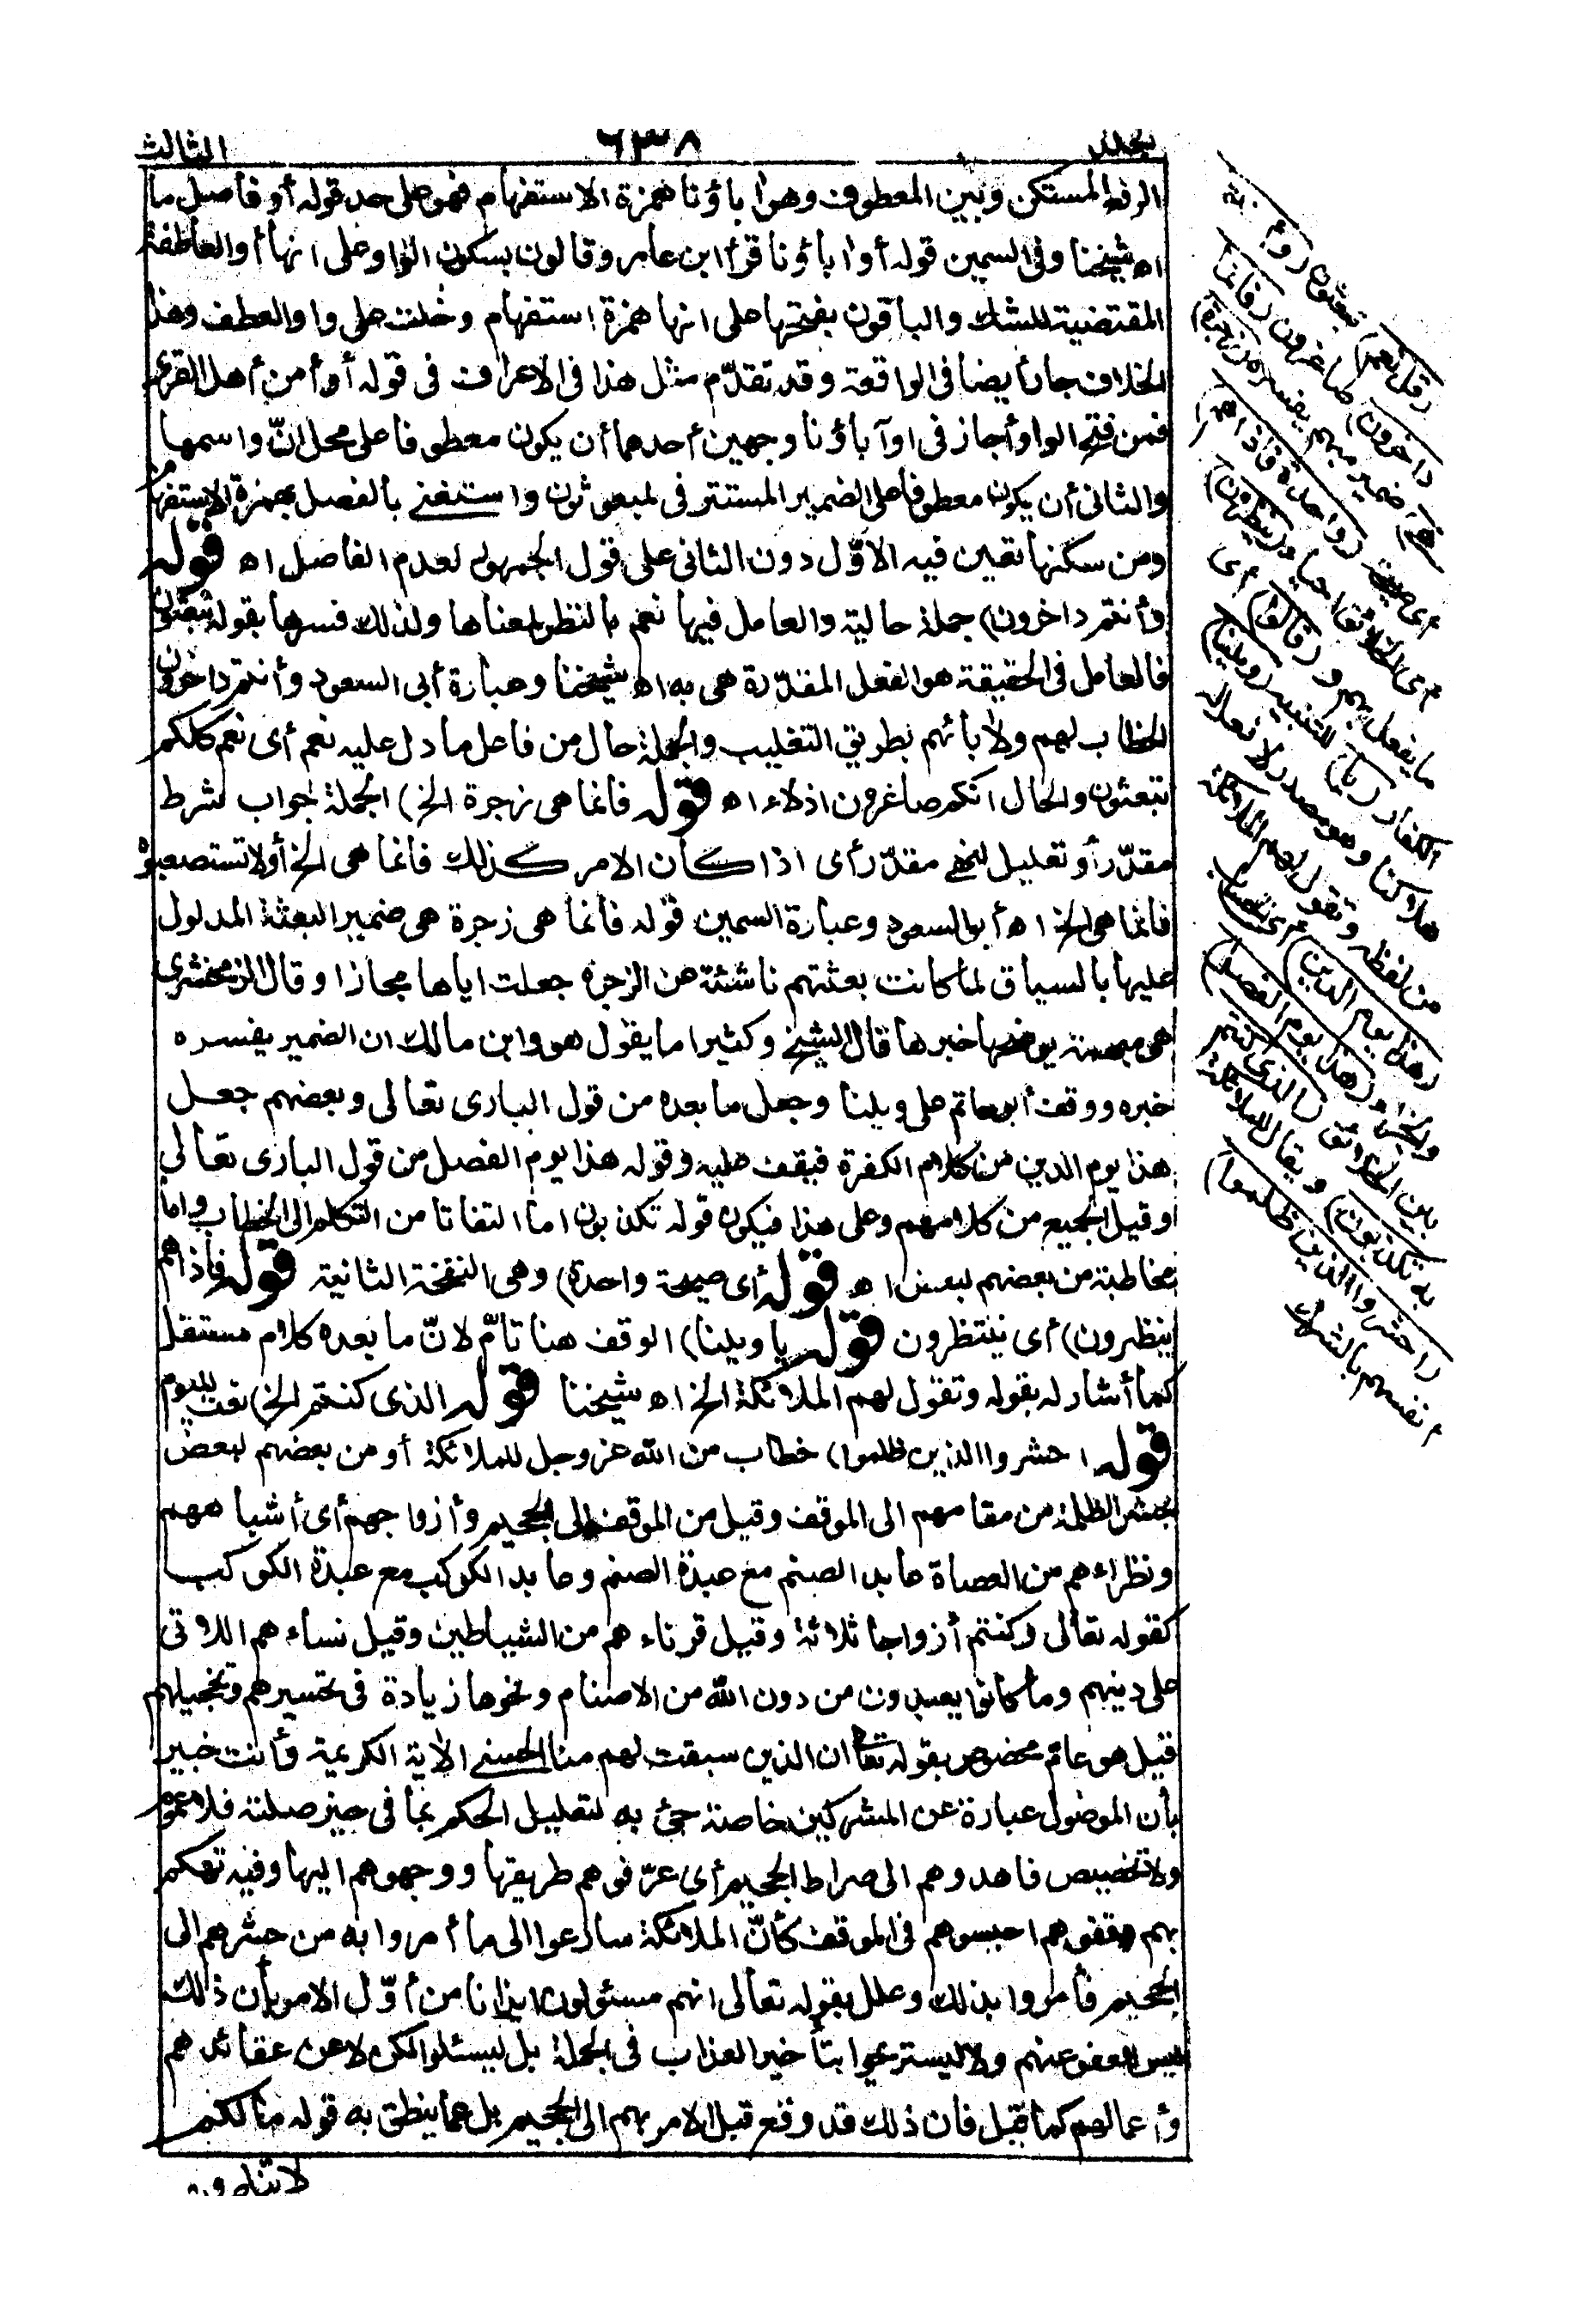 المجلد
٦٣٨
الثالث
الرفع المستكن وبين المعطوف وهوا باؤنا همزة الاستفهام فهو على حد قوله أو فاصل ما
اه شيخنا وفى السمين قوله أوا باؤنا قرأ ابن عامر وقالون بسكون الواو على انها أو العاطفة
المقتضية للشك والباقون بفتحها على انها همزة استفهام دخلت على واو العطف وهذا
الخلاف جار أيضا فى الواقعة وقد تقدّم مثل هذا فى الاعراف فى قوله أو أمن أهل القرى
فمن فتح الواو أجاز فى اوآباؤنا وجهين أحدهما أن يكون معطوفا على محل انّ واسمها
والثانى أن يكون معطوفا على الضمير المستتر فى لمبعوثون واستغنى بالفصل بهمزة الاستفهام
ومن سكنها تعين فيه الاوّل دون الثانى على قول الجمهور لعدم الفاصل اه قوله
وأنتم داخرون) جملة حالية والعامل فيها نعم بالنظر لمعناها ولذلك فسرها بقوله تبعثون
فالعامل فى الحقيقة هو الفعل المقدّرة هى به اه شيخنا وعبارة أبى السعود وأنتم داخرون
الخطاب لهم ولا بائهم بطريق التغليب والجملة حال من فاعل ما دل عليه نعم أى نعم كلكم
تبعثون والحال انكم صاغرون اذلاء اه قوله فانما هى زجرة الخ) الجملة جواب شرط
مقدّر أو تعليل لنهى مقدّر أى اذا كان الامر كذلك فانما هى الخ أو لا تستصعبوه
فانما هى الخ اه أبو السعود وعبارة السمين قوله فانما هى زجرة هى ضمير البعثة المدلول
عليها بالسياق لما كانت بعثتهم ناشئة عن الزجرة جعلت اياها مجازا وقال الزمخشرى
هى مبهمة يوضحها خبرها قال الشيخ وكثيرا ما يقول هو وابن مالك ان الضمير يفسره
خبره ووقف أبو حاتم على ويلنا وجعل ما بعده من قول البارى تعالى وبعضهم جعل
هذا يوم الدين من كلام الكفرة فيقف عليه وقوله هذا يوم الفصل من قول البارى تعالى
وقيل الجميع من كلامهم وعلى هذا فيكون قوله تكذبون اما التفاتا من التكلم الى الخطاب واما
مخاطبة من بعضهم لبعض اه قوله أى صيحة واحدة) وهى النفخة الثانية قوله فاذا هم
ينظرون) أى ينتظرون قوله يا ويلنا) الوقف هنا تامّ لانّ ما بعده كلام مستقل
كما أشار له بقوله وتقول لهم الملائكة الخ اه شيخنا قوله الذى كنتم الخ) نعت لليوم
قوله احشروا الذين ظلموا) خطاب من الله عز وجل للملائكة أو من بعضهم لبعض
بحشر الظلمة من مقامهم الى الموقف وقيل من الموقف الى الجحيم وأزواجهم أى أشباههم
ونظراءهم من العصاة عابد الصنم مع عبدة الصنم وعابد الكوكب مع عبدة الكوكب
كقوله تعالى وكنتم أزواجا ثلاثة وقيل قرناءهم من الشياطين وقيل نساءهم اللاتى
على دينهم وما كانوا يعبدون من دون الله من الاصنام ونحوها زيادة فى تحسيرهم وتخجيلهم
قيل هو عامّ مخصوص بقوله تعالى ان الذين سبقت لهم منا الحسنى الاية الكريمة وأنت خبير
بأن الموصول عبارة عن المشركين خاصة جئ به لتعليل الحكم بما فى حيز صلته فلا عموم
ولا تخصيص فاهدوهم الى صراط الجحيم أى عرّفوهم طريقها ووجهوهم اليها وفيه تهكم
بهم وقفوهم احبسوهم فى الموقف كأنّ الملائكة سارعوا الى ما أمروا به من حشرهم الى
الجحيم فأمروا بذلك وعلل بقوله تعالى انهم مسئولون ايذانا من أوّل الامر بأن ذلك
ليس للعفو عنهم ولا ليستريحوا بتأخير العذاب فى الجملة بل ليسئلوا لكن لا عن عقائدهم
وأعمالهم كما قيل فان ذلك قد وقع قبل الامر بهم الى الجحيم بل عما ينطق به قوله ما لكم
لا تناصرون
(قل نعم) تبعثون (وأنتم
داخرون) صاغرون (فانما
هى) ضمير مبهم يفسره (زجرة)
أى صيحة (واحدة فاذا هم)
أى الخلائق احياء (ينظرون)
ما يفعل بهم و(قالوا) أى
الكفار (يا) للتنبيه (ويلنا)
هلاكنا وهو مصدر لا فعل له
من لفظه وتقول لهم الملائكة
(هذا يوم الدين) أى الحساب
والجزاء (هذا يوم الفصل)
بين الخلائق (الذى كنتم
به تكذبون) ويقال للملائكة
(احشروا الذين ظلموا)
أنفسهم بالشرك